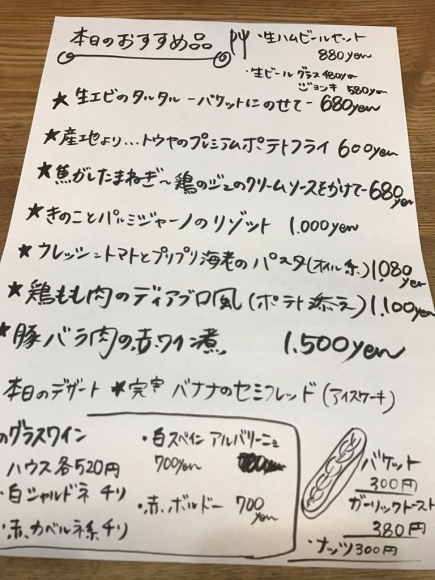 本日のおすすめ品
・生ハムビールセット
880yen
・生ビール グラス 480yen
ジョッキ 580yen
★ 生エビのタルタル ーバケットにのせてー 680yen
★産地より…トウヤのプレミアムポテトフライ 600yen
★焦がしたまねぎ〜鶏のジュのクリームソースをかけて 680yen
★きのことパルミジャーノのリゾット 1.000yen
★フレッシュトマトとプリプリ海老のパスタ(オイル系) 1.080yen
★鶏もも肉のディアブロ風 (ポテト添え) 1.100yen
★豚バラ肉の赤ワイン煮 1.500yen
本日のデザート ★完宇 バナナのセミフレッド (アイスケーキ)
のグラスワイン
ハウス各520円
・白シャルドネ チリ
・赤、カベルネ系 チリ
・白スペイン アルバリーニョ
700yen
・赤、ボルドー 700yen
バケット
300円
ガーリックトースト
380円
・ナッツ 300円